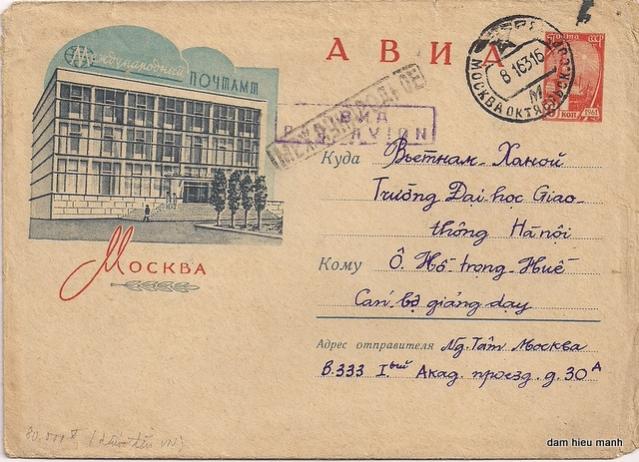 Международный
ПОЧТАМТ
АВИА
ПОЧТА СССР
1961
МОСКВА ОКТЯБРЬСК.
8 1 63 16
М
МЕЖДУНАРОДНОЕ
АВИА
PAR AVION
Куда Вьетнам - Ханой
Trường Đại học Giao-
thông Hà nội
Кому Ô. Hồ trọng Huế
Cán bộ giảng dạy
Москва
Адрес отправителя Ng. Tâm Москва
В.333 Iый Акад. проезд. д. 30А
80.000đ
dam hieu manh